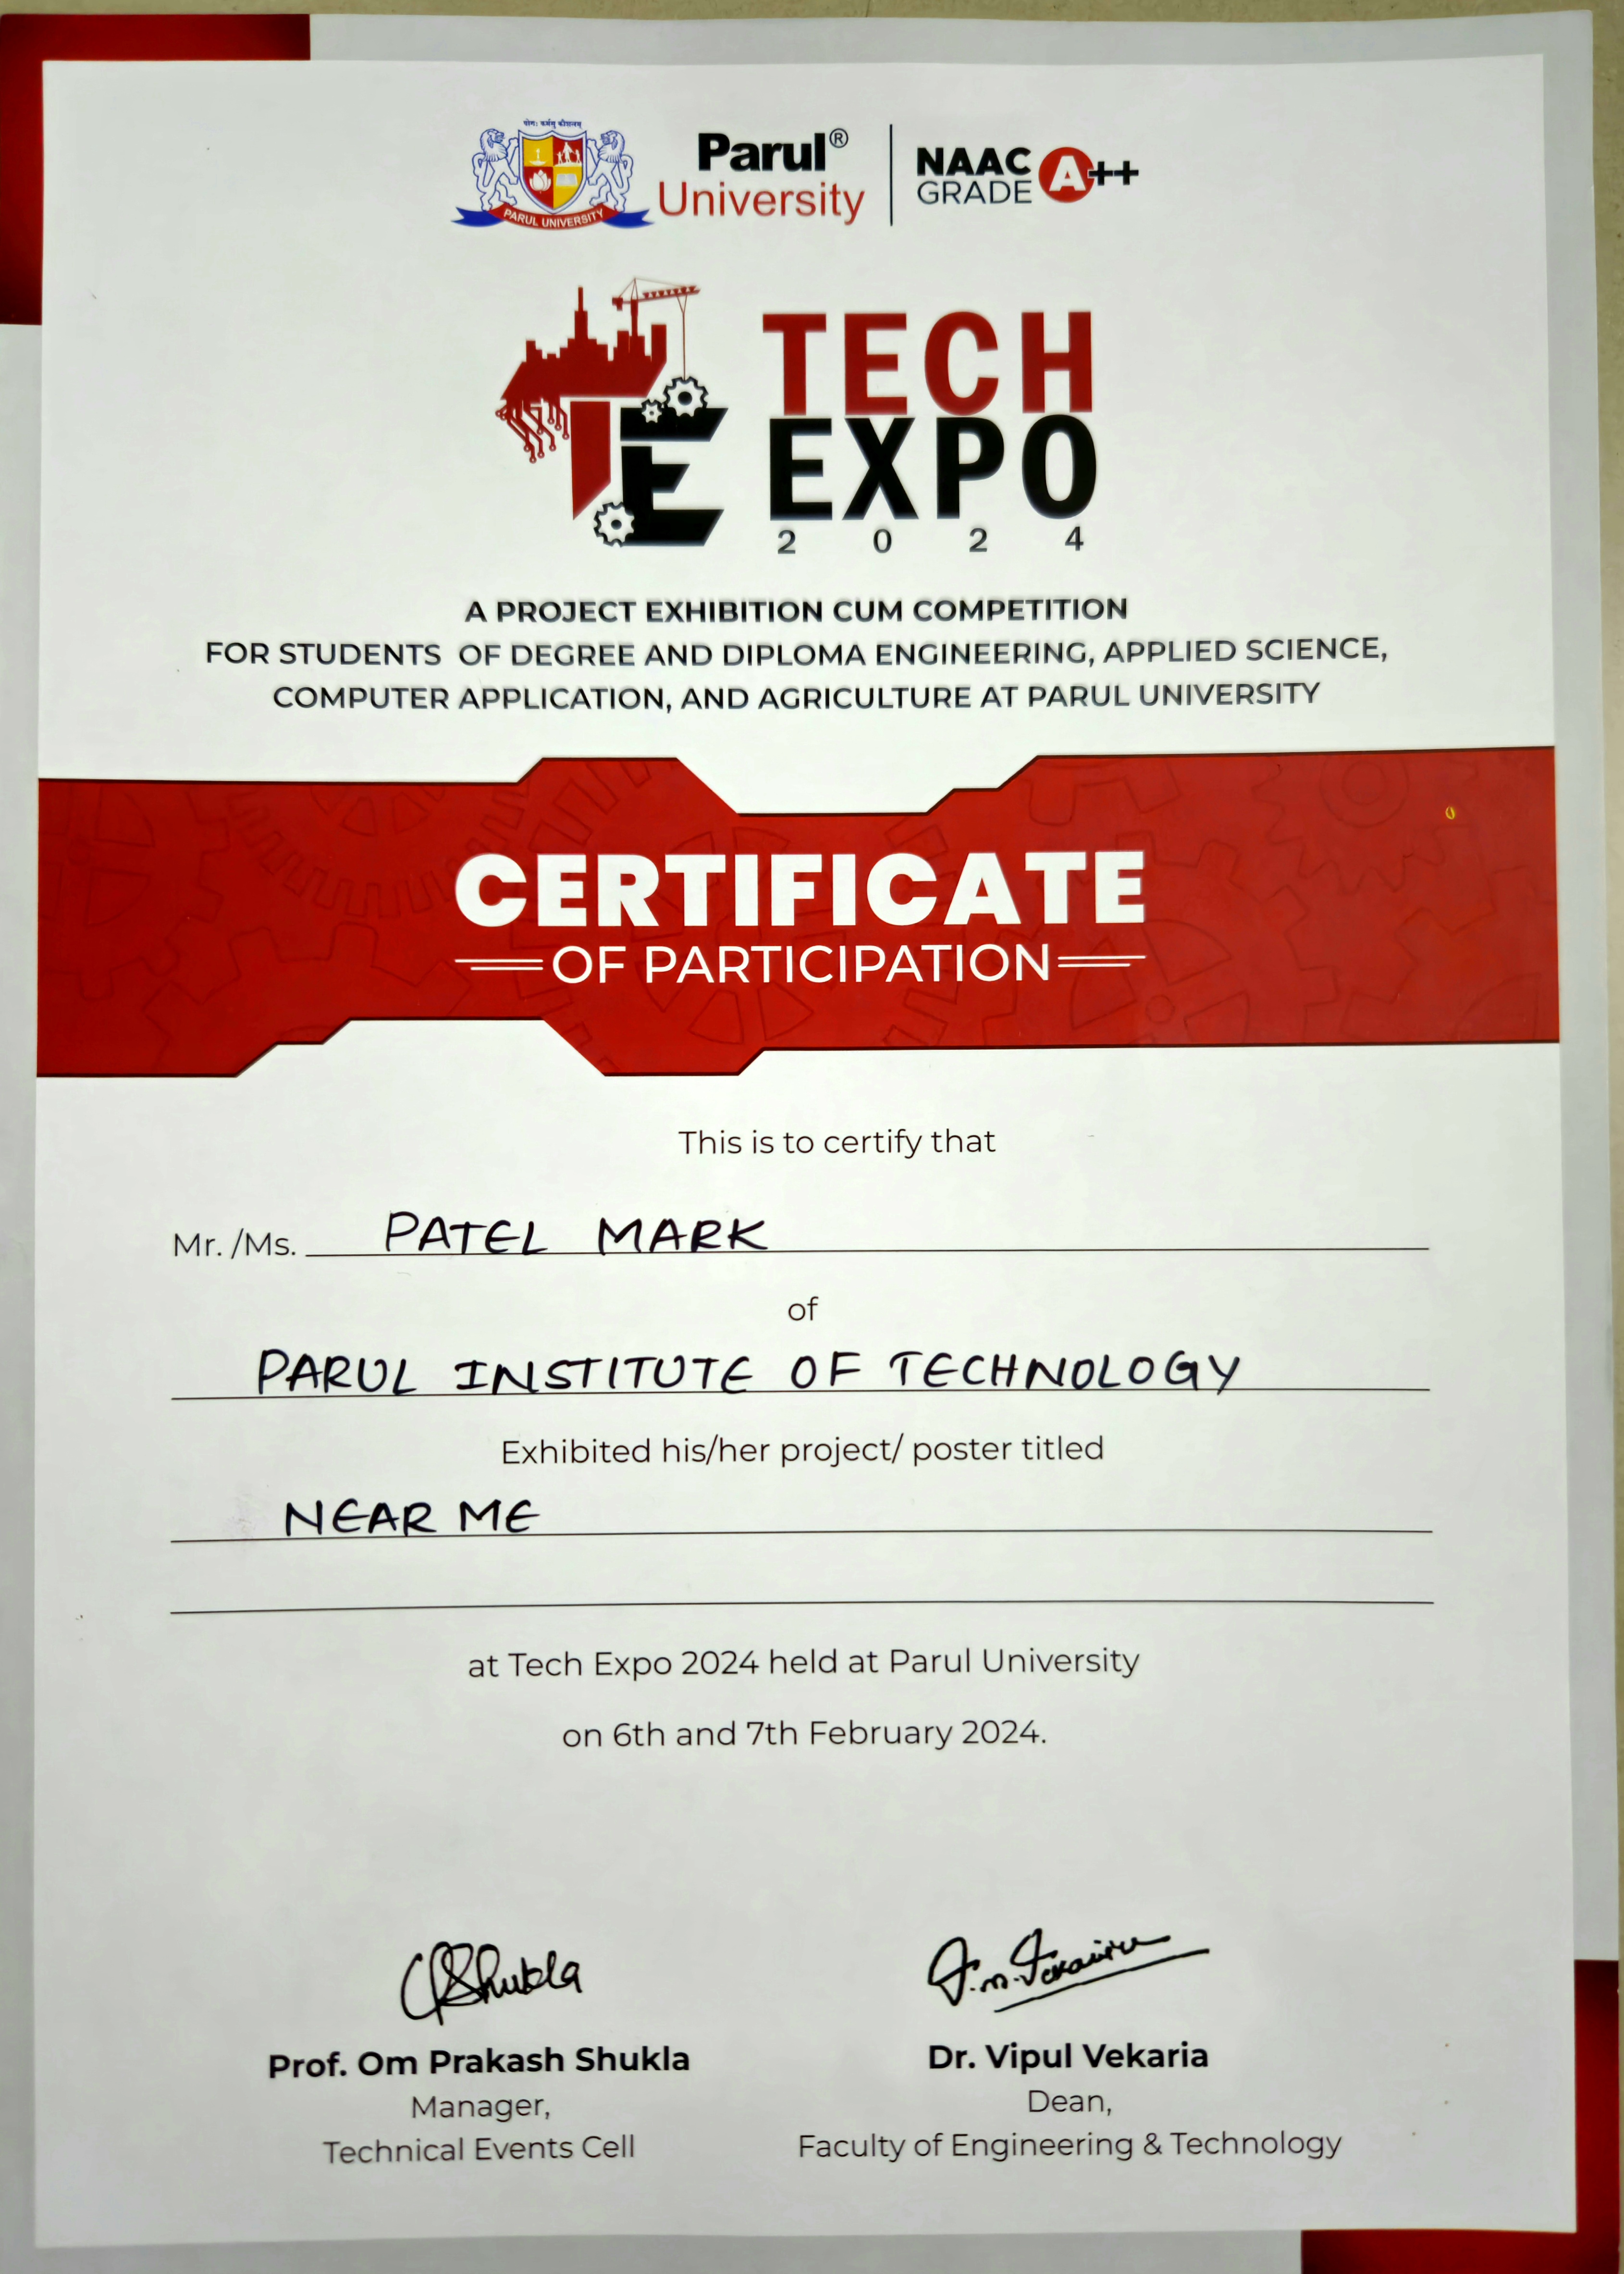 योगः कर्मसु कौशलम्
PARUL UNIVERSITY
Parul®
University
NAAC
GRADE A++
TE
TECH
EXPO
2024
A PROJECT EXHIBITION CUM COMPETITION
FOR STUDENTS OF DEGREE AND DIPLOMA ENGINEERING, APPLIED SCIENCE,
COMPUTER APPLICATION, AND AGRICULTURE AT PARUL UNIVERSITY
CERTIFICATE
OF PARTICIPATION
This is to certify that
Mr. /Ms. PATEL MARK
of
PARUL INSTITUTE OF TECHNOLOGY
Exhibited his/her project/ poster titled
NEAR ME
at Tech Expo 2024 held at Parul University
on 6th and 7th February 2024.
Prof. Om Prakash Shukla
Manager,
Technical Events Cell
Dr. Vipul Vekaria
Dean,
Faculty of Engineering & Technology